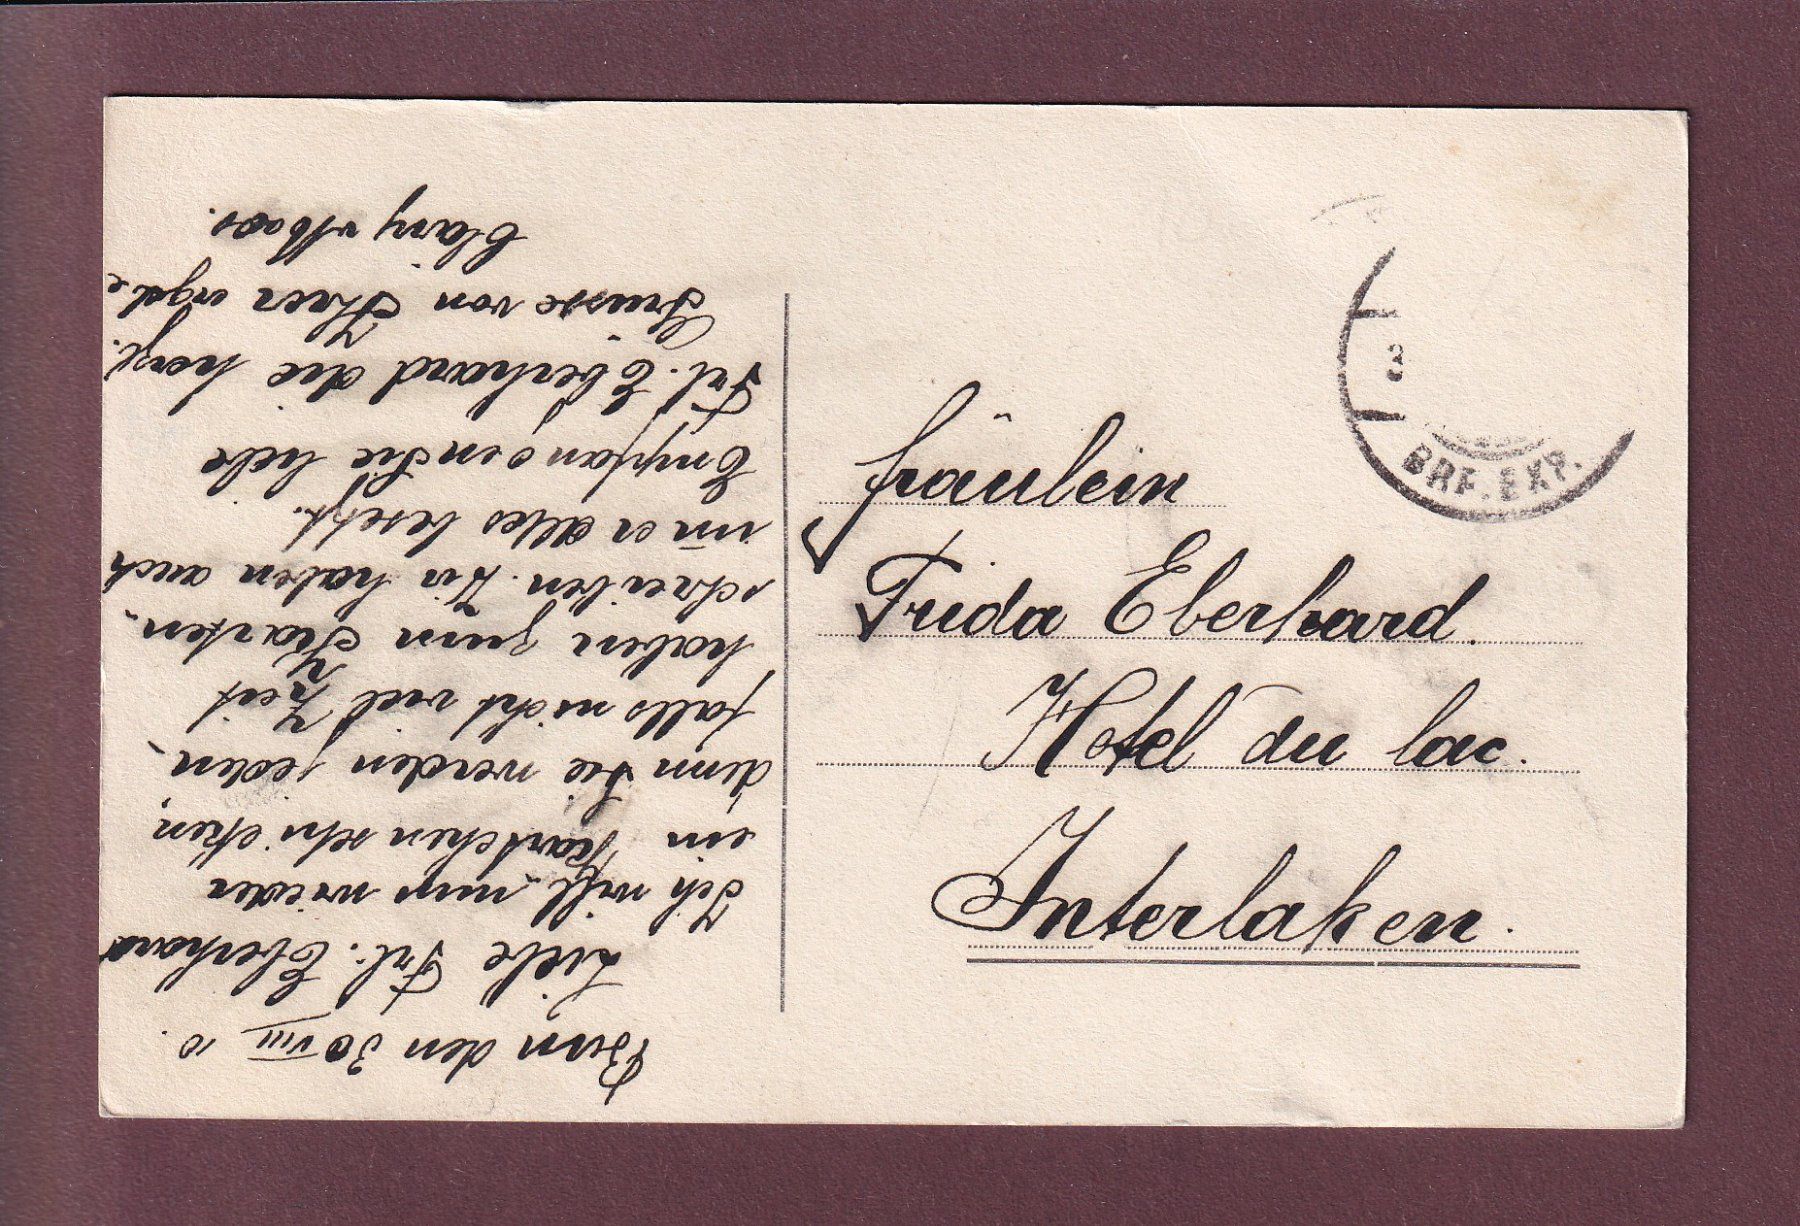 Bern den 30 VIII 10.
Liebe Frl. Eberhard
Ich will nun wieder
ein Kärtchen schicken,
denn Sie werden jeden-
falls nicht viel Zeit
haben zum Karten-
schreiben. Wir haben auch
im̄er alles besetzt.
Empfangen Sie liebe
Frl. Eberhard die herzl.
Grüsse von Ihrer ergb.
Clary
Fräulein
Frida Eberhard.
Hotel du lac.
Interlaken.
3
BRF. EXP.